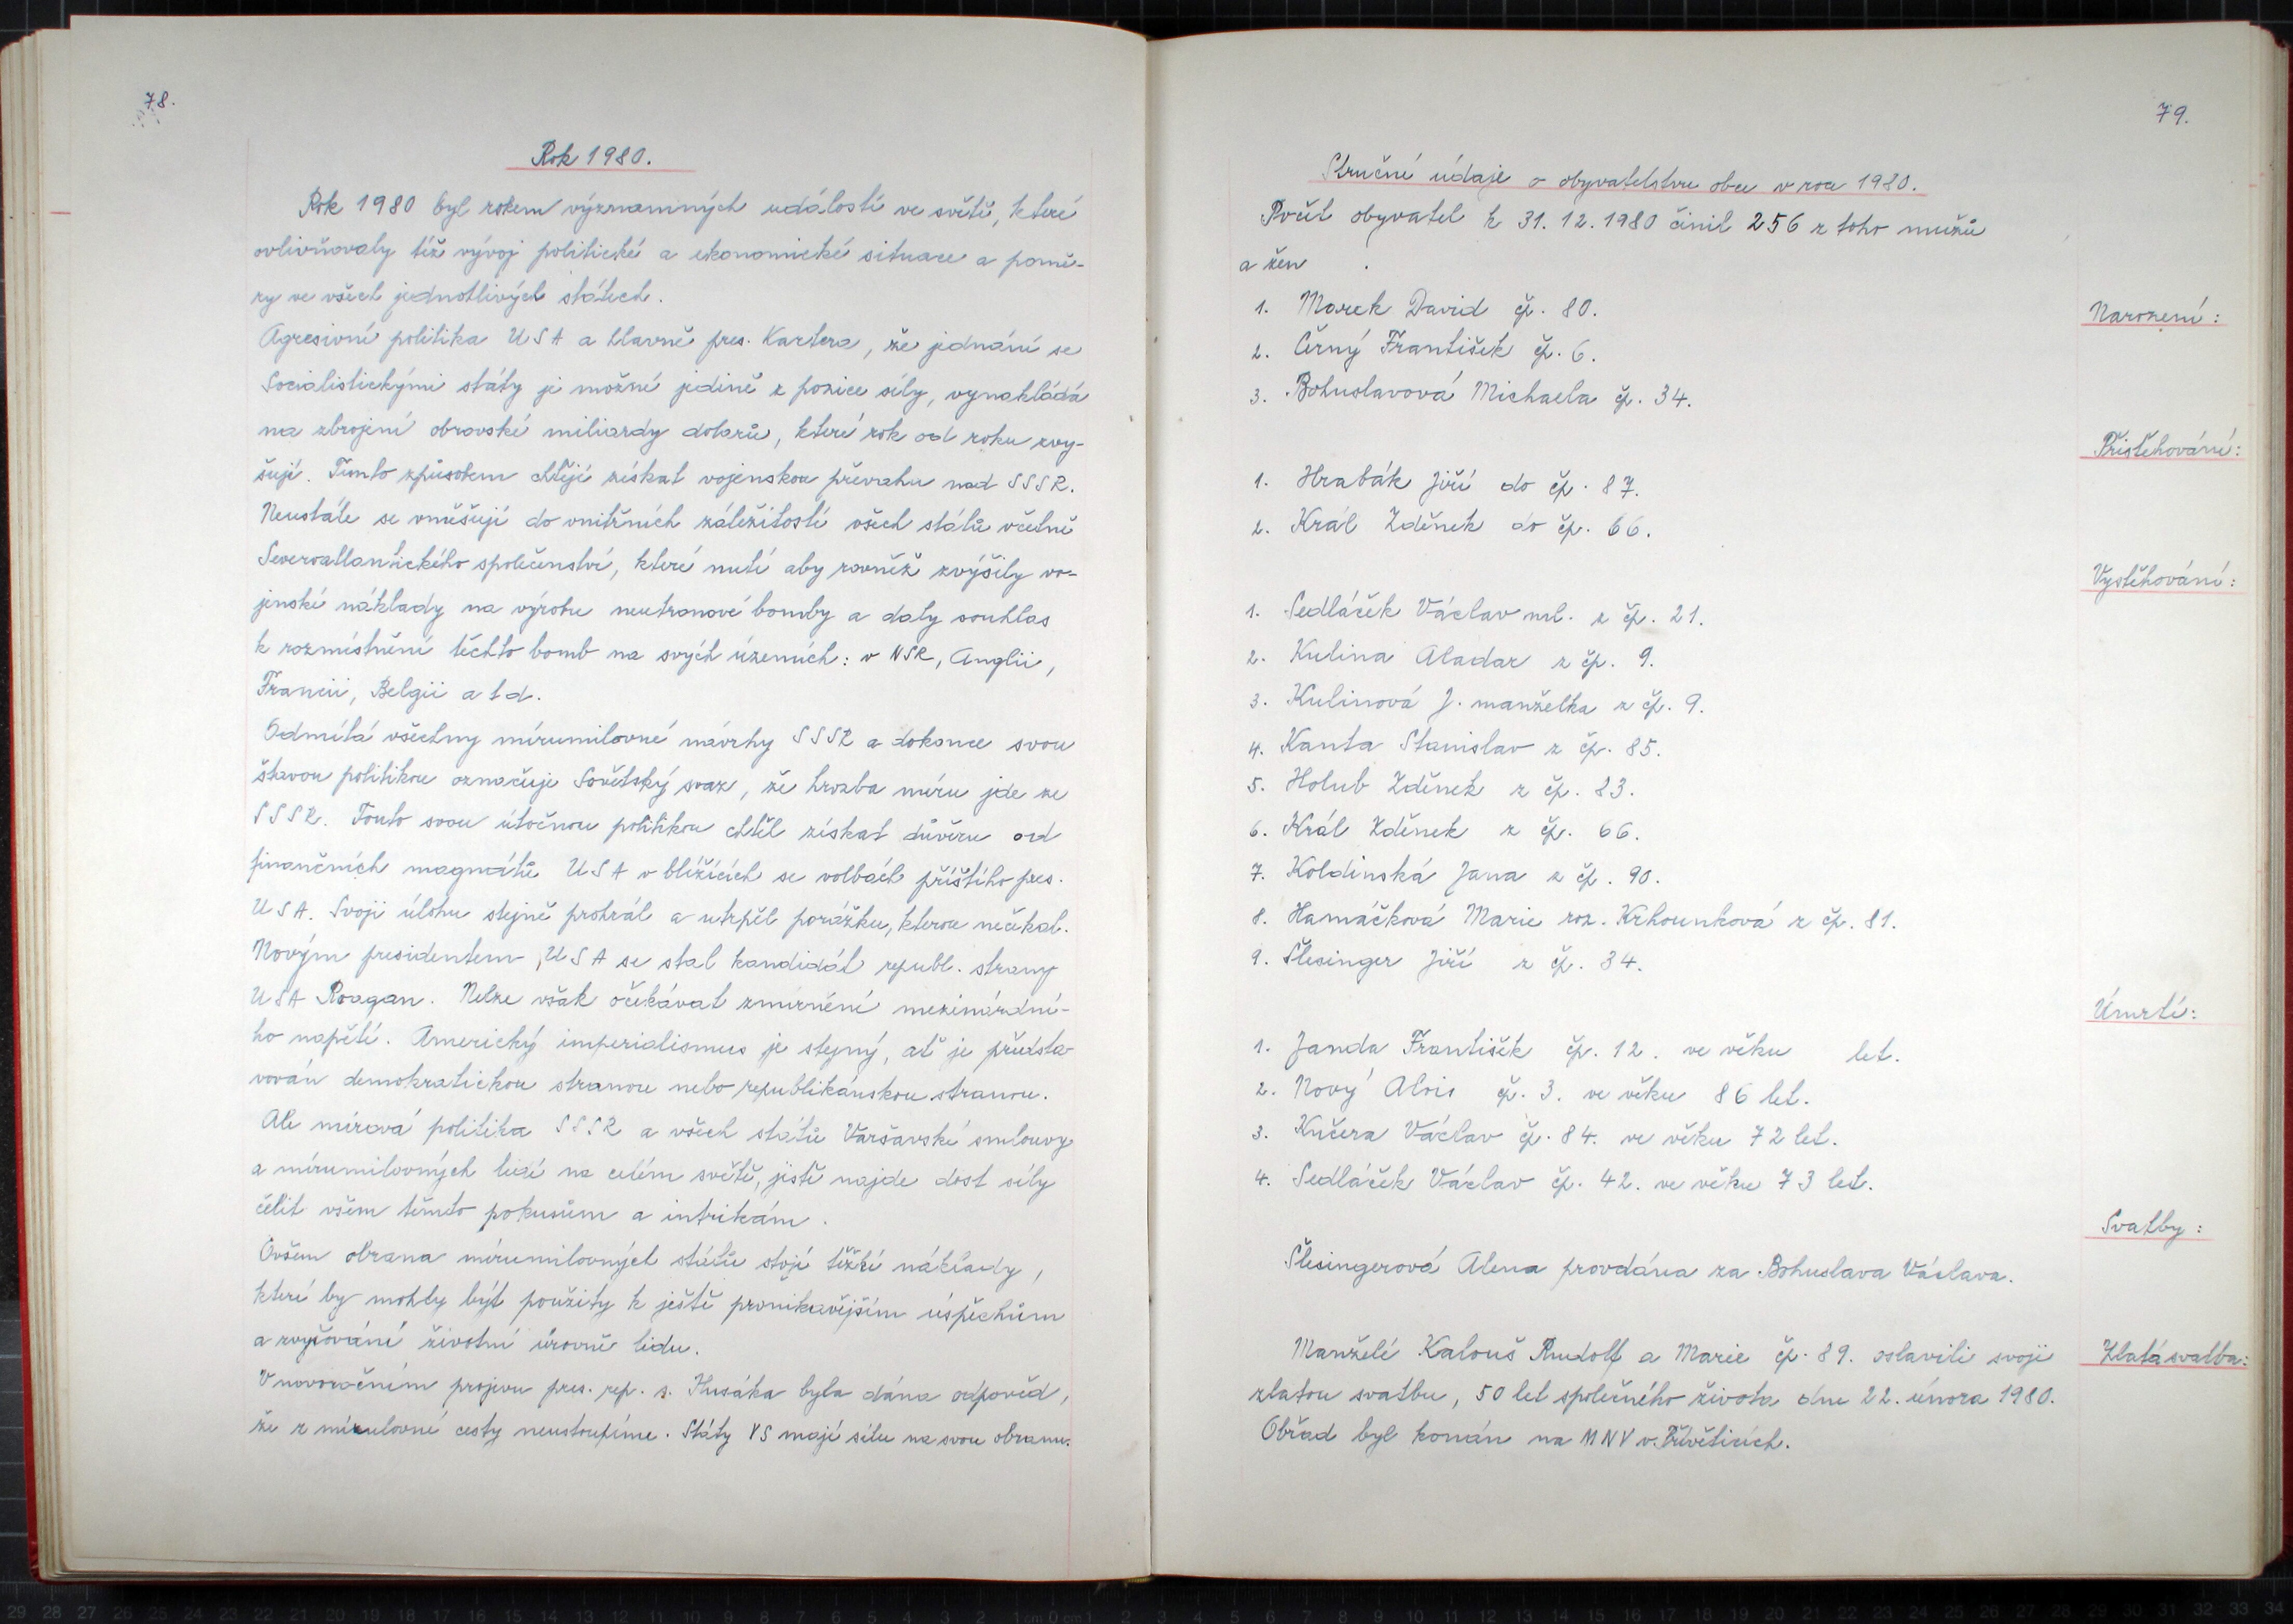 78.
Rok 1980.
Rok 1980 byl rokem významných událostí ve světě, které
ovlivňovaly též vývoj politické a ekonomické situace a pomě-
ry ve všech jednotlivých státech.
Agresivní politika USA a hlavně pres. Kartera, že jednání se
Socialistickými státy je možné jedině z pozice síly, vynakládá
na zbrojení obrovské miliardy dolarů, které rok od roku zvy-
šují. Tímto způsobem chtějí získat vojenskou převahu nad SSSR.
Neustále se vměšují do vnitřních záležitostí všech států včetně
Severoatlantického společenství, které nutí aby rovněž zvýšily vo-
jenské náklady na výrobu neutronové bomby a daly souhlas
k rozmístnění těchto bomb na svých územích: v NSR, Anglii,
Francii, Belgii atd.
Odmítá všechny mírumilovné návrhy SSSR a dokonce svou
štavou politikou označuje Sovětský svaz, že hrozba míru jde ze
SSSR. Touto svou útočnou politikou chtěl získat důvěru od
finančních magnátů USA v blížících se volbách příštího pres.
USA. Svoji úlohu stejně prohrál a utrpěl porážku, kterou nečekal.
Novým presidentem USA se stal kandidát republ. strany
USA Roagan. Nelze však očekávat zmírnění mezinárdní-
ho napětí. Americký imperialismus je stejný, ať je předsta-
vován demokratickou stranou nebo republikánskou stranou.
Ale mírová politika SSSR a všech států Varšavské smlouvy
a mírumilovných lidí na celém světě, jistě najde dost síly
čelit všem těmto pokusům a intrikám.
Ovšem obrana mírumilovných států stojí těžké náklady,
které by mohly být použity k ještě pronikavějším úspěchům
a zvyšování životní úrovně lidu.
V novoročním projevu pres. rep. s. Husáka byla dána odpověd,
že z mírulovné cesty neustoupíme. Státy VS mají sílu na svou obranu.
79.
Stručné údaje o obyvatelstvu obce v roce 1980.
Počet obyvatel k 31. 12. 1980 činil 256 z toho mužů
a žen .
Narození:
1. Marek David čp. 80.
2. Černý František čp. 6.
3. Bohuslavová Michaela čp. 34.
Přistěhování:
1. Hrabák Jiří do čp. 87.
2. Král Zděnek do čp. 66.
Vystěhování:
1. Sedláček Václav ml. z čp. 21.
2. Kulina Aladar z čp. 9.
3. Kulinová J. manželka z čp. 9.
4. Kanta Stanislav z čp. 85.
5. Holub Zděnek z čp. 83.
6. Král Zděnek z čp. 66.
7. Koldinská Jana z čp. 90.
8. Hamáčková Marie roz. Krhounková z čp. 81.
9. Šlesinger Jiří z čp. 34.
Úmrtí:
1. Janda František čp. 12. ve věku let.
2. Nový Alois čp. 3. ve věku 86 let.
3. Kučera Václav čp. 84. ve věku 72 let.
4. Sedláček Václav čp. 42. ve věku 73 let.
Svatby:
Šlesingerová Alena provdána za Bohuslava Václava.
Zlatá svatba:
Manželé Kalouš Rudolf a Marie čp. 89. oslavili svoji
zlatou svatbu, 50 let společného života dne 22. února 1980.
Obřad byl konán na MNV v Přívěticích.